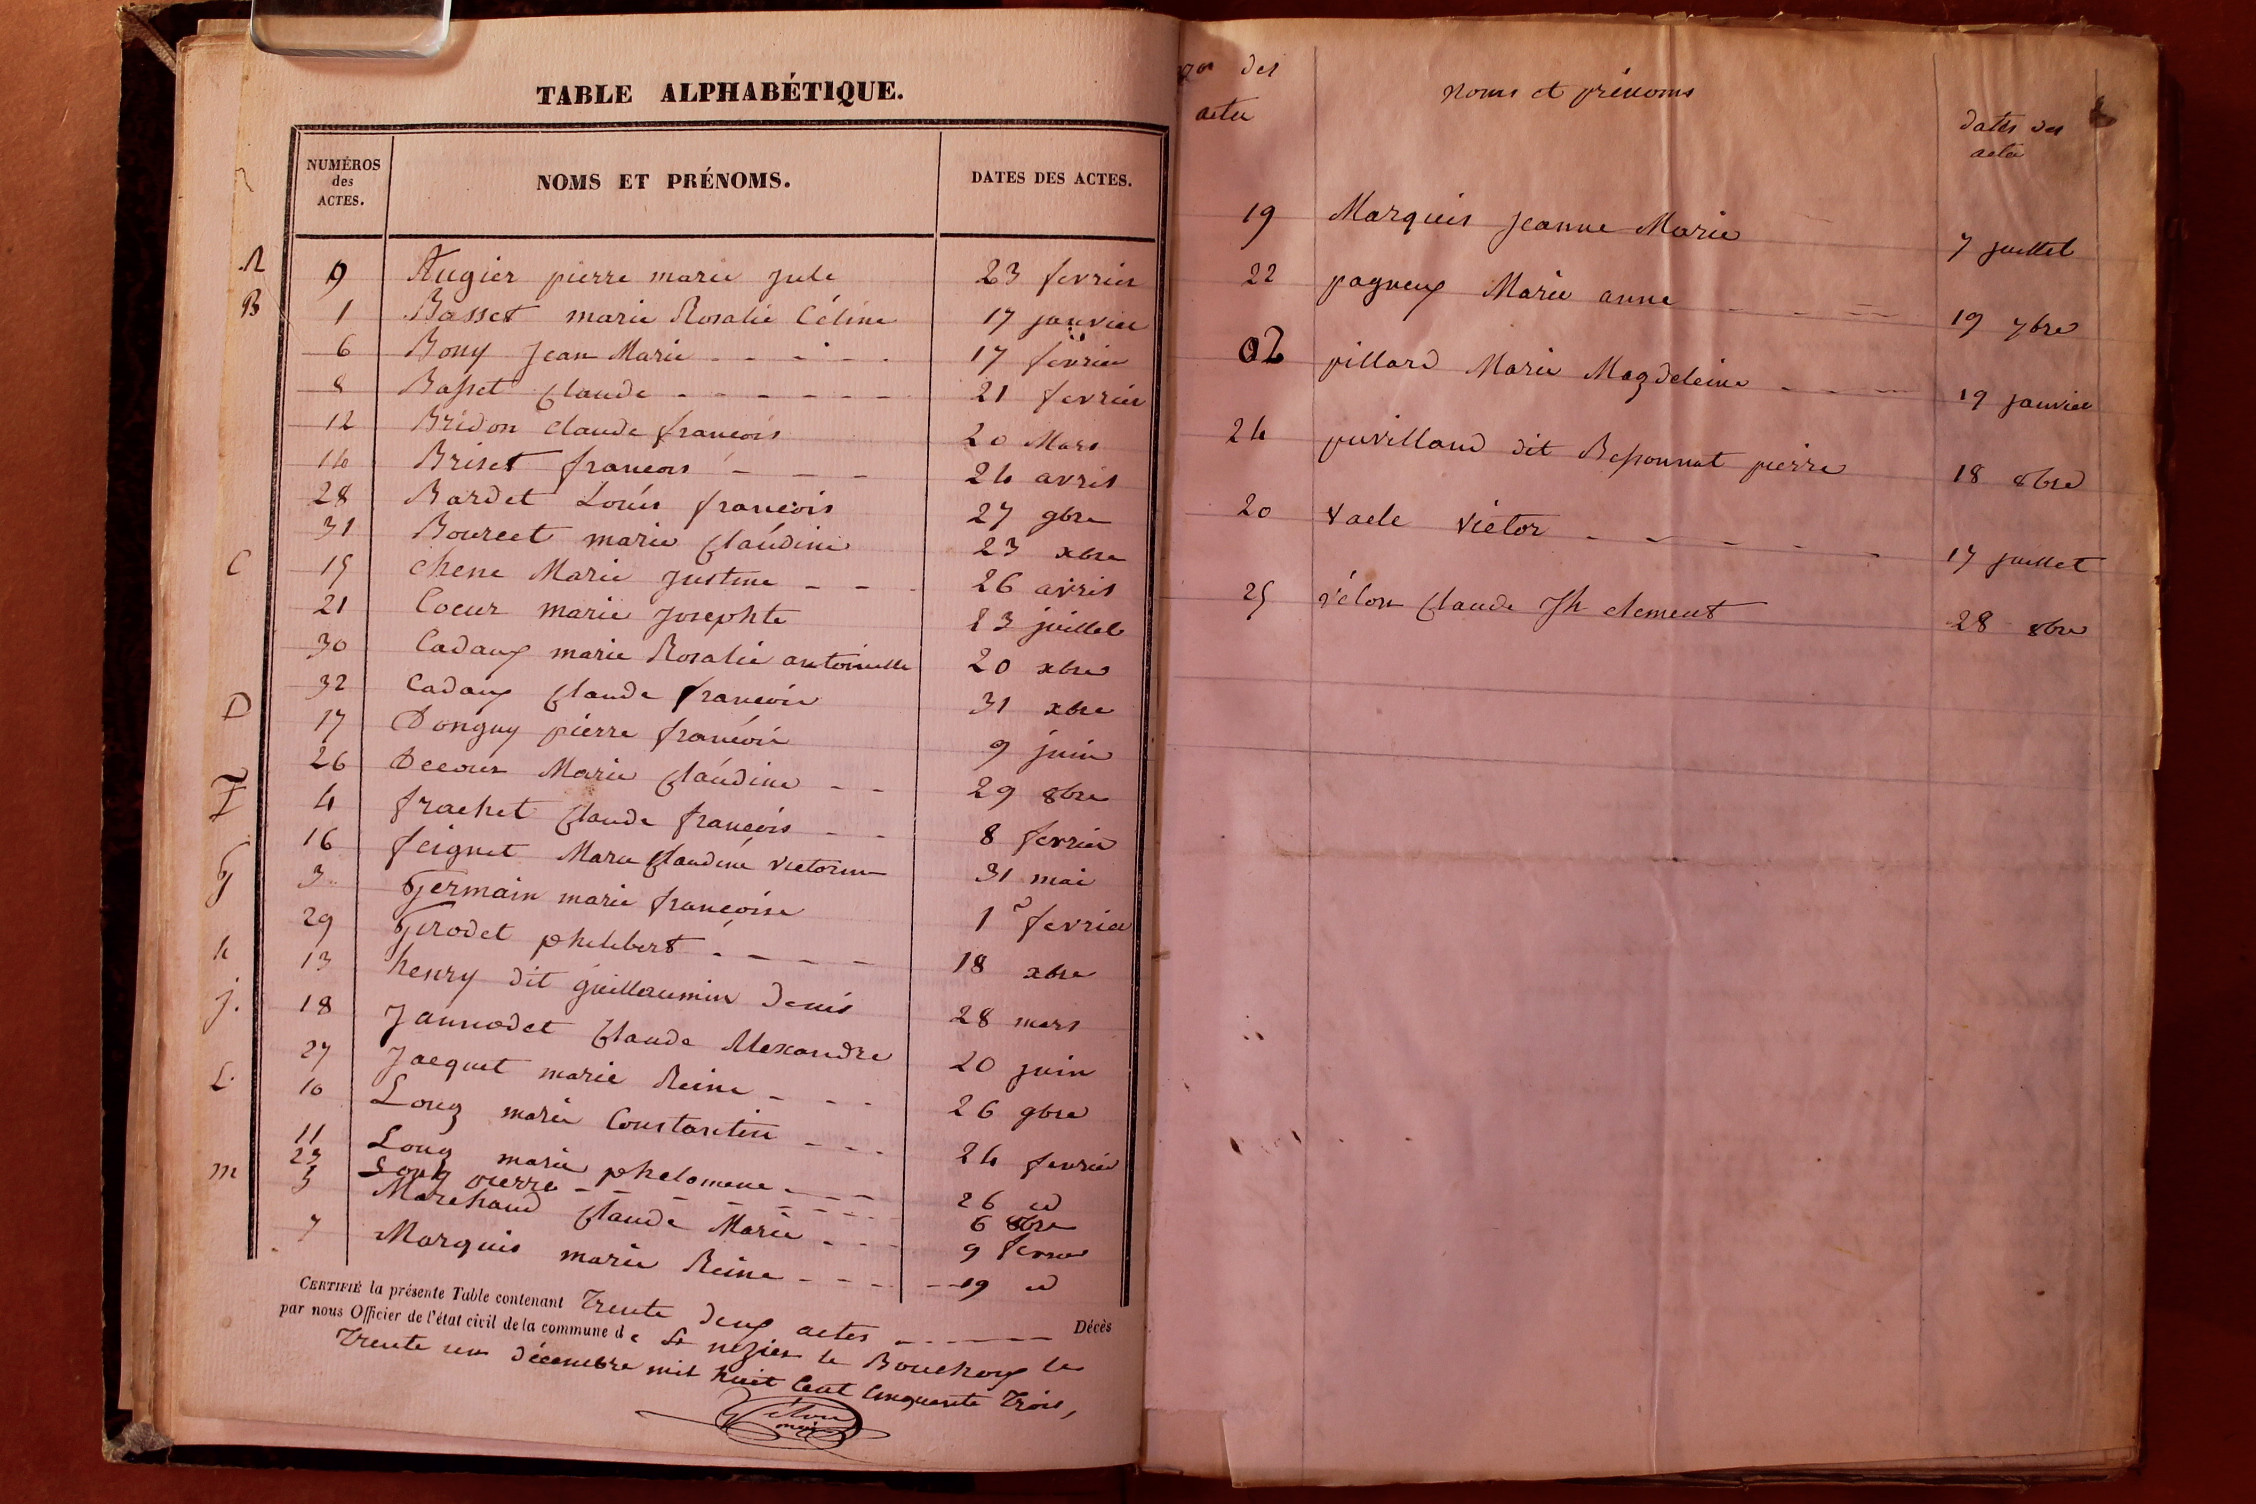 TABLE ALPHABÉTIQUE.
NUMÉROS des ACTES. NOMS ET PRÉNOMS. DATES DES ACTES.
A 9 Augier pierre marie jule 23 fevrier
B 1 Basset marie Rosalie Céline 17 janvier
6 Bony Jean Marie - - - - 17 fevrier
8 Basset Claude - - - - - - 21 fevrier
12 Bridon claude françois 20 Mars
14 Briset françois - - - 24 avril
28 Bardet Louis françois 27 9bre
31 Bourcet marie Claudine 23 xbre
C 15 chene Marie Justine - - - 26 avril
21 Coeur marie Josephte 23 juillet
30 Cadaux marie Rosalie antoinette 20 xbre
32 Cadaux Claude françois 31 xbre
D 17 Donguy pierre françois 9 juin
26 Decour Marie Claudine - - 29 8bre
F 4 frachet Claude françois - - 8 fevrier
16 feignet Marie Claudine victorine 31 mai
G 3 Germain marie françoise 1er fevrier
29 Girodet philibert - - - - 18 xbre
h 13 henry dit guillaumin denis 28 mars
j. 18 Jannodet Claude Alexandre 20 juin
27 Jacquet marie Reine - - - 26 9bre
L. 10 Long marie Constantin - - - 24 fevrier
11 Long marie phelomene - - - 26 id
23 Long pierre - - - - - - 6 8bre
m 5 Marchand Claude Marie - - - 9 fevrier
7 Marquis marie Reine - - - - - 19 id
CERTIFIÉ la présente Table contenant Trente deux actes - - - - - - Décès
par nous Officier de l'état civil de la commune de St nizier le Bouchoux le
Trente un décembre mil huit Cent Cinquante Trois,
Vélon
nos des actes noms et prénoms dates des actes
19 Marquis Jeanne Marie 7 juillet
22 pagneux Marie anne - - - - 19 7bre
02 pillard Marie Magdeleine - - - - 19 janvier
24 puvilland dit Bessonnat pierre 18 8bre
20 vacle victor - - - - - - 17 juillet
25 vélon Claude Jh clement 28 8bre